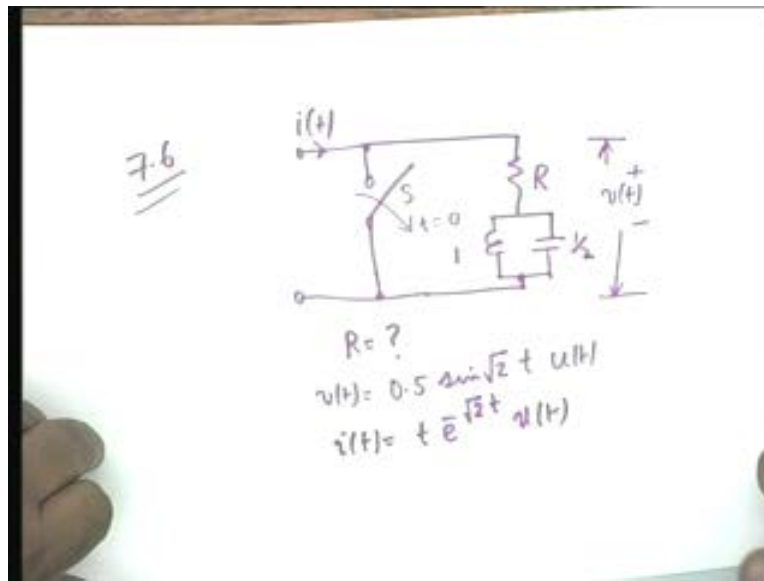 7.6
i(t)
S
t=0
R
1
1/2
+
v(t)
-
R= ?
v(t)= 0.5 sin√2 t u(t)
i(t)= t e^-√2 t u(t)